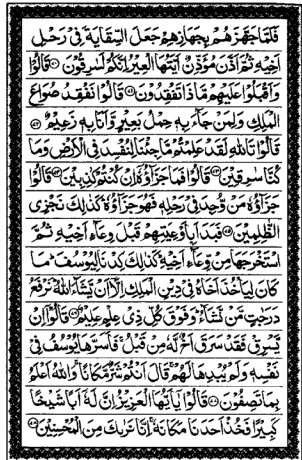 فَلَمَّا جَهَّزَهُمْ بِجَهَازِهِمْ جَعَلَ السِّقَايَةَ فِیْ رَحْلِ
اَخِیْهِ ثُمَّ اَذَّنَ مُؤَذِّنٌ اَیَّتُهَا الْعِیْرُ اِنَّكُمْ لَسٰرِقُوْنَ ۝ قَالُوْا
وَاَقْبَلُوْا عَلَیْهِمْ مَّاذَا تَفْقِدُوْنَ ۝ قَالُوْا نَفْقِدُ صُوَاعَ
الْمَلِكِ وَلِمَنْ جَآءَ بِهٖ حِمْلُ بَعِیْرٍ وَّاَنَا بِهٖ زَعِیْمٌ ۝
قَالُوْا تَاللّٰهِ لَقَدْ عَلِمْتُمْ مَّا جِئْنَا لِنُفْسِدَ فِی الْاَرْضِ وَمَا
كُنَّا سٰرِقِیْنَ ۝ قَالُوْا فَمَا جَزَآؤُهٗۤ اِنْ كُنْتُمْ كٰذِبِیْنَ ۝ قَالُوْا
جَزَآؤُهٗ مَنْ وُّجِدَ فِیْ رَحْلِهٖ فَهُوَ جَزَآؤُهٗ كَذٰلِكَ نَجْزِی
الظّٰلِمِیْنَ ۝ فَبَدَاَ بِاَوْعِیَتِهِمْ قَبْلَ وِعَآءِ اَخِیْهِ ثُمَّ
اسْتَخْرَجَهَا مِنْ وِّعَآءِ اَخِیْهِ كَذٰلِكَ كِدْنَا لِیُوْسُفَ مَا
كَانَ لِیَاْخُذَ اَخَاهُ فِیْ دِیْنِ الْمَلِكِ اِلَّاۤ اَنْ یَّشَآءَ اللّٰهُ نَرْفَعُ
دَرَجٰتٍ مَّنْ نَّشَآءُ وَفَوْقَ كُلِّ ذِیْ عِلْمٍ عَلِیْمٌ ۝ قَالُوْۤا اِنْ
یَّسْرِقْ فَقَدْ سَرَقَ اَخٌ لَّهٗ مِنْ قَبْلُ فَاَسَرَّهَا یُوْسُفُ فِیْ
نَفْسِهٖ وَلَمْ یُبْدِهَا لَهُمْ قَالَ اَنْتُمْ شَرٌّ مَّكَانًا وَاللّٰهُ اَعْلَمُ
بِمَا تَصِفُوْنَ ۝ قَالُوْا یٰۤاَیُّهَا الْعَزِیْزُ اِنَّ لَهٗۤ اَبًا شَیْخًا
كَبِیْرًا فَخُذْ اَحَدَنَا مَكَانَهٗ اِنَّا نَرٰىكَ مِنَ الْمُحْسِنِیْنَ ۝